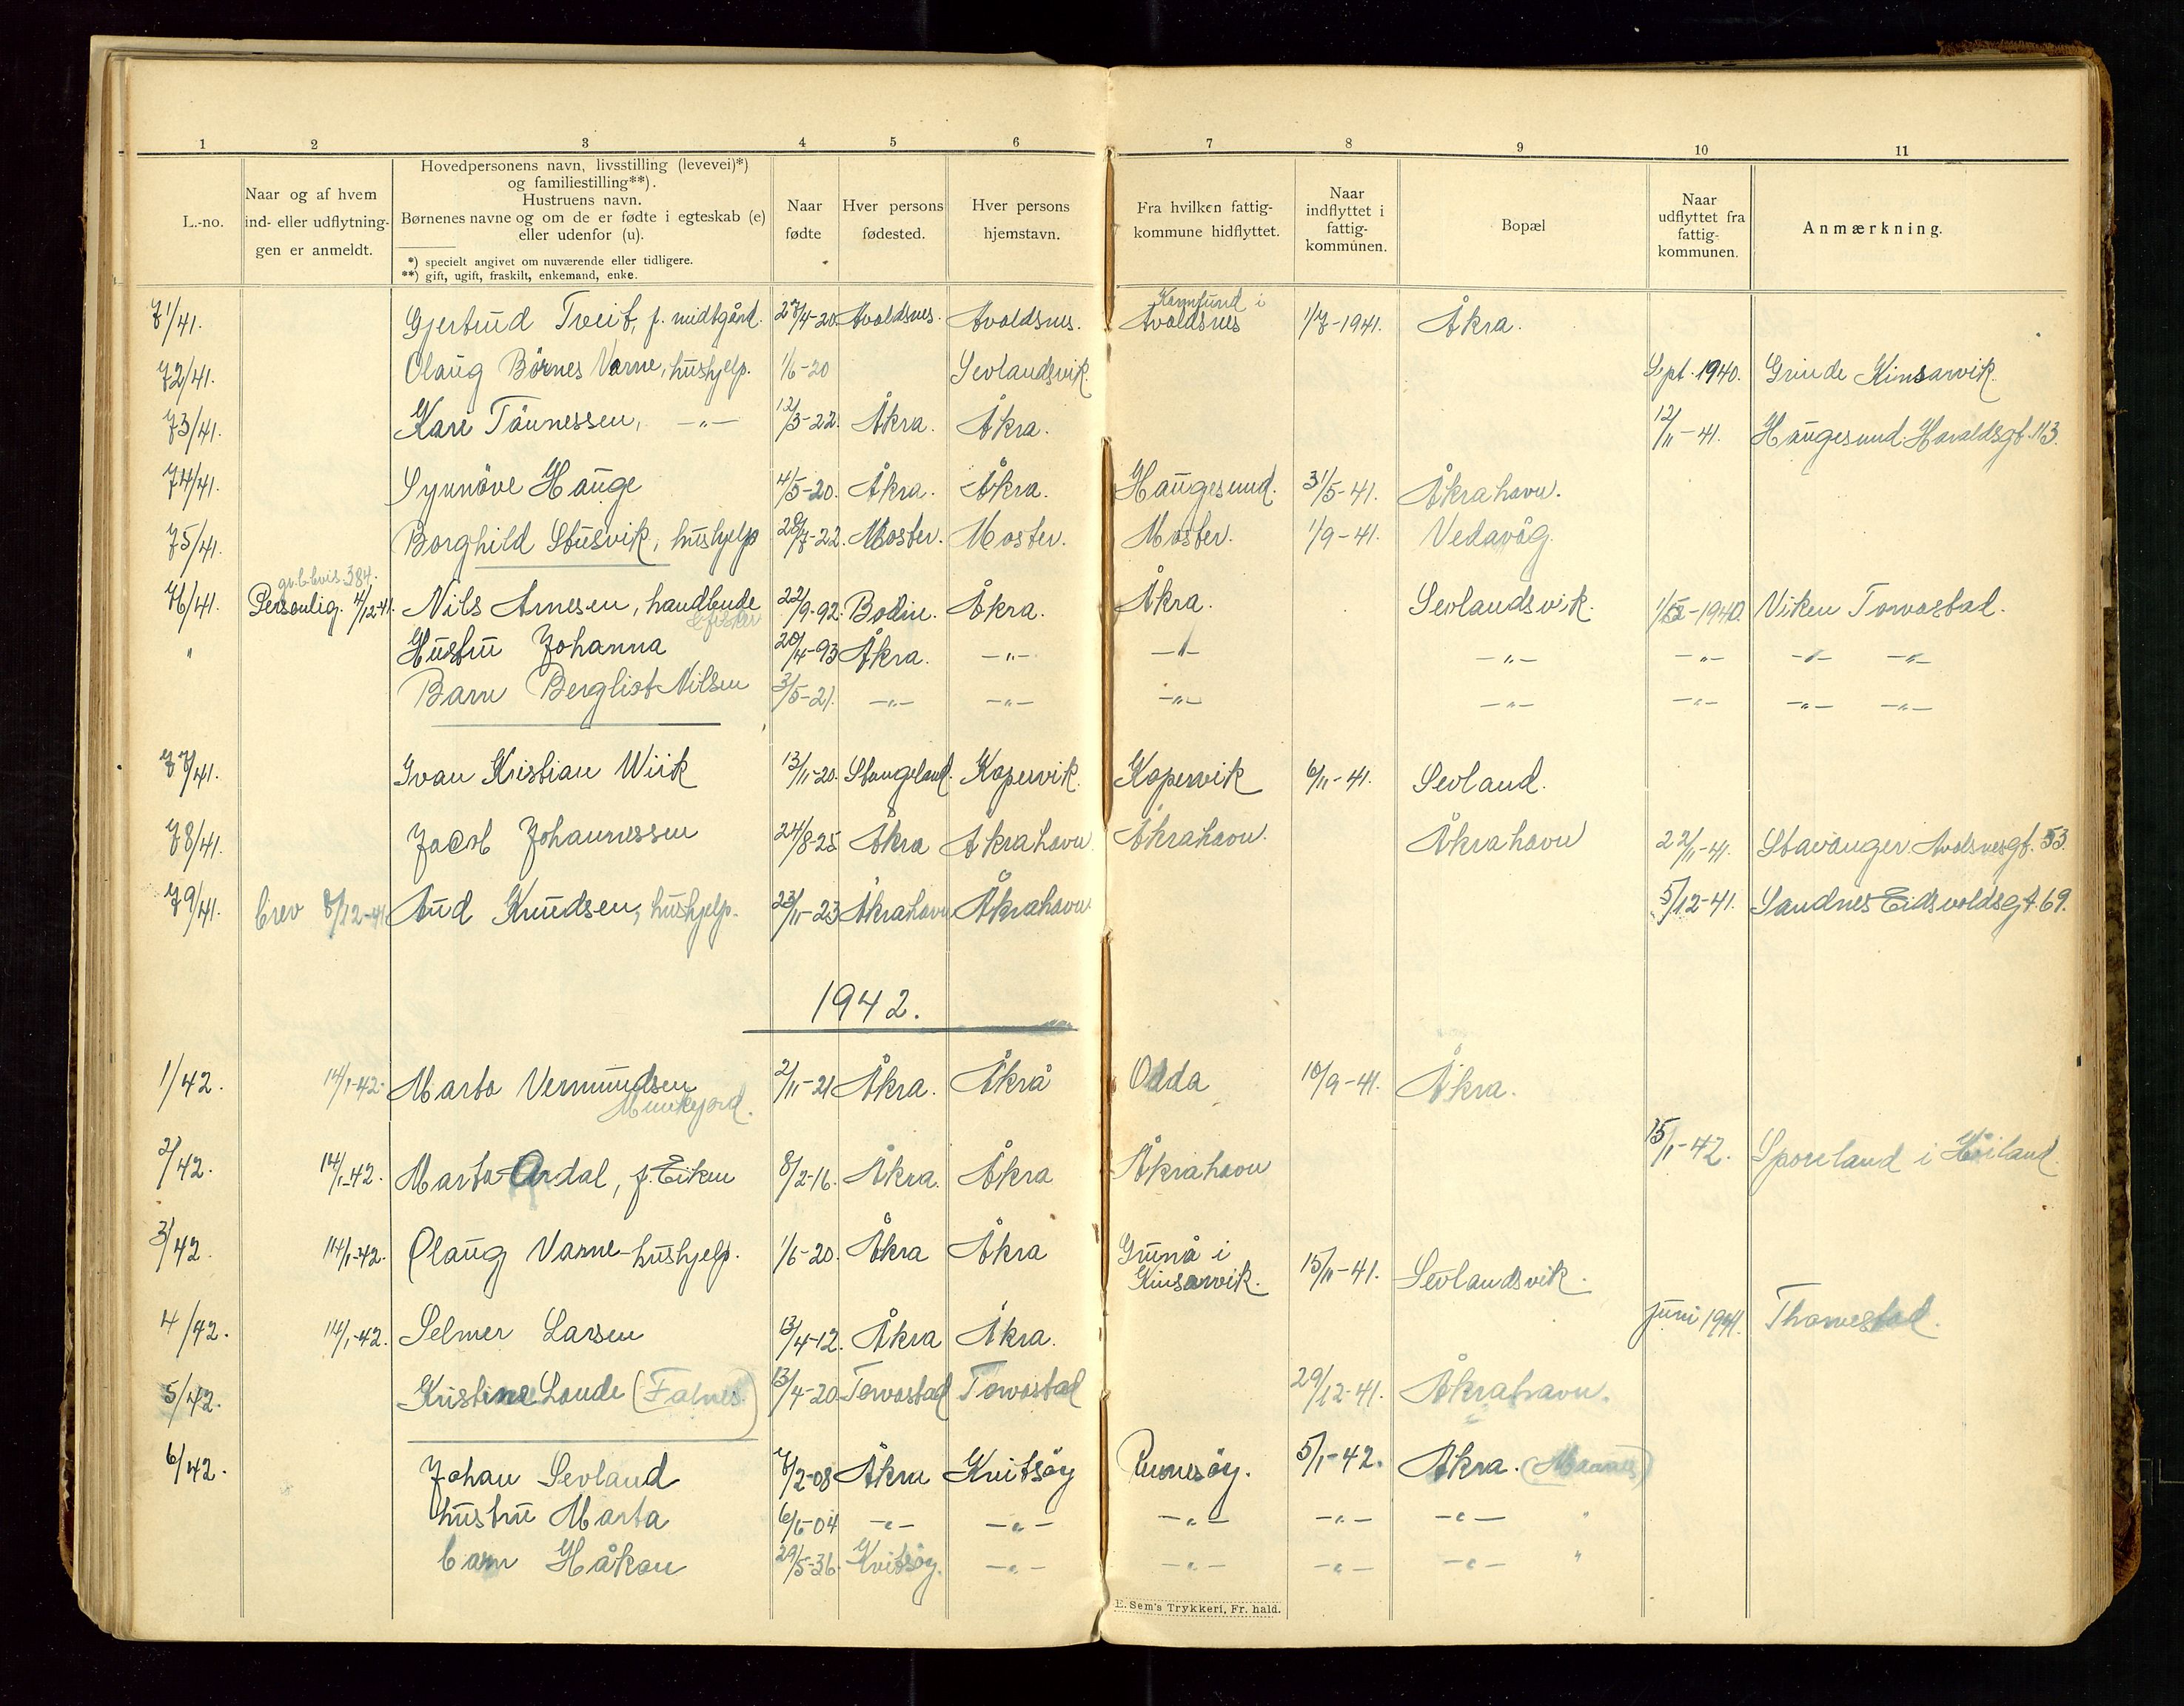 1 2 3 4 5 6 7 8 9 10 11
L.-no.
Naar og af hvem
ind- eller udflytnin-
gen er anmeldt.
Hovedpersonens navn, livsstilling (levevei)*)
og familiestilling**).
Hustruens navn.
Børnenes navne og om de er fødte i egteskab (e)
eller udenfor (u).
*) specielt angivet om nuværende eller tidligere.
**) gift, ugift, fraskilt, enkemand, enke.
Naar
fødte
Hver persons
fødested.
Hver persons
hjemstavn.
Fra hvilken fattig-
kommune hidflyttet.
Naar
indflyttet i
fattig-
kommunen.
Bopæl
Naar
udflyttet fra
fattig-
kommunen.
Anmærkning.
71/41. Gjertrud Tveit, f. midtgård. 27/4-20. Avaldsnes. Avaldsnes. Karmsund i Avaldsnes 1/7-1941. Åkra.
72/41. Olaug Børnes Varne, hushjelp. 1/6-20 Sevlandsvik. Sept. 1940. Grinde Kinsarvik.
73/41. Kari Tönnessen, -"- 12/3-22. Åkra. Åkra. 12/11-41. Haugesund. Haraldsgt. 113.
74/41. Synnöve Hauge 4/5-20. Åkra. Åkra. Haugesund. 31/5-41. Åkrahavn.
75/41. Borghild Stusvik, hushjelp 28/7-22. Moster. Moster. Moster. 1/9-41. Vedavåg.
76/41. Personlig. 4/12-41. Nils Arnesen, handlende 22/9-92. Bodin. Åkra. Åkra. Sevlandsvik. 1940. Viken Torvastad.
" Hustru Johanna 20/4-93 Åkra. -"- -"- -"- -"- -"- -"-
Barn Bergliot Nilsen 3/5-21. -"- -"- -"- -"- -"- -"- -"-
77/41. Ivan Kristian Wiik 13/11-20. Stangeland. Kopervik. Kopervik 6/11-41. Sevland.
78/41. Jacob Johannessen 24/8-25 Åkra Åkrahavn Åkrahavn. Åkrahavn 22/11-41. Stavanger. 53.
79/41. brev 8/12-41 Aud Knudsen, hushjelp. 23/11-23 Åkrahavn Åkrahavn 5/12-41. Sandnes Eidsvoldsgt 69.
1942.
1/42. 14/1-42. Marta Vermundsen 2/11-21 Åkra. Åkra Odda 10/9-41. Åkra.
Munkejord.
2/42. 14/1-42. Marta Årdal, f. Eiken 8/2-16. Åkra. Åkra Åkrahavn 15/1-42. i Høiland
3/42. 14/1-42. Olaug Varne - hushjelp. 1/6-20. Åkra Åkra i Kinsarvik. 15/11-41. Sevlandsvik.
4/42. 14/1-42. Selmer Larsen 13/4-12. Åkra Åkra. juni 1941.
5/42. Kristine Lande (Falnes) 13/4-20 Torvastad Torvastad 29/12-41. Åkrahavn.
6/42. Johan Sevland 7/2-08 Åkra Kvitsöy Rennesöy. 5/1-42. Åkra. (Mannes)
hustru Marta 6/6-04 -"- -"- -"- -"- -"- "
barn Håkon 29/5-36. Kvitsöy. -"- -"- -"- -"- "
E. Sem's Trykkeri, Fr. hald.